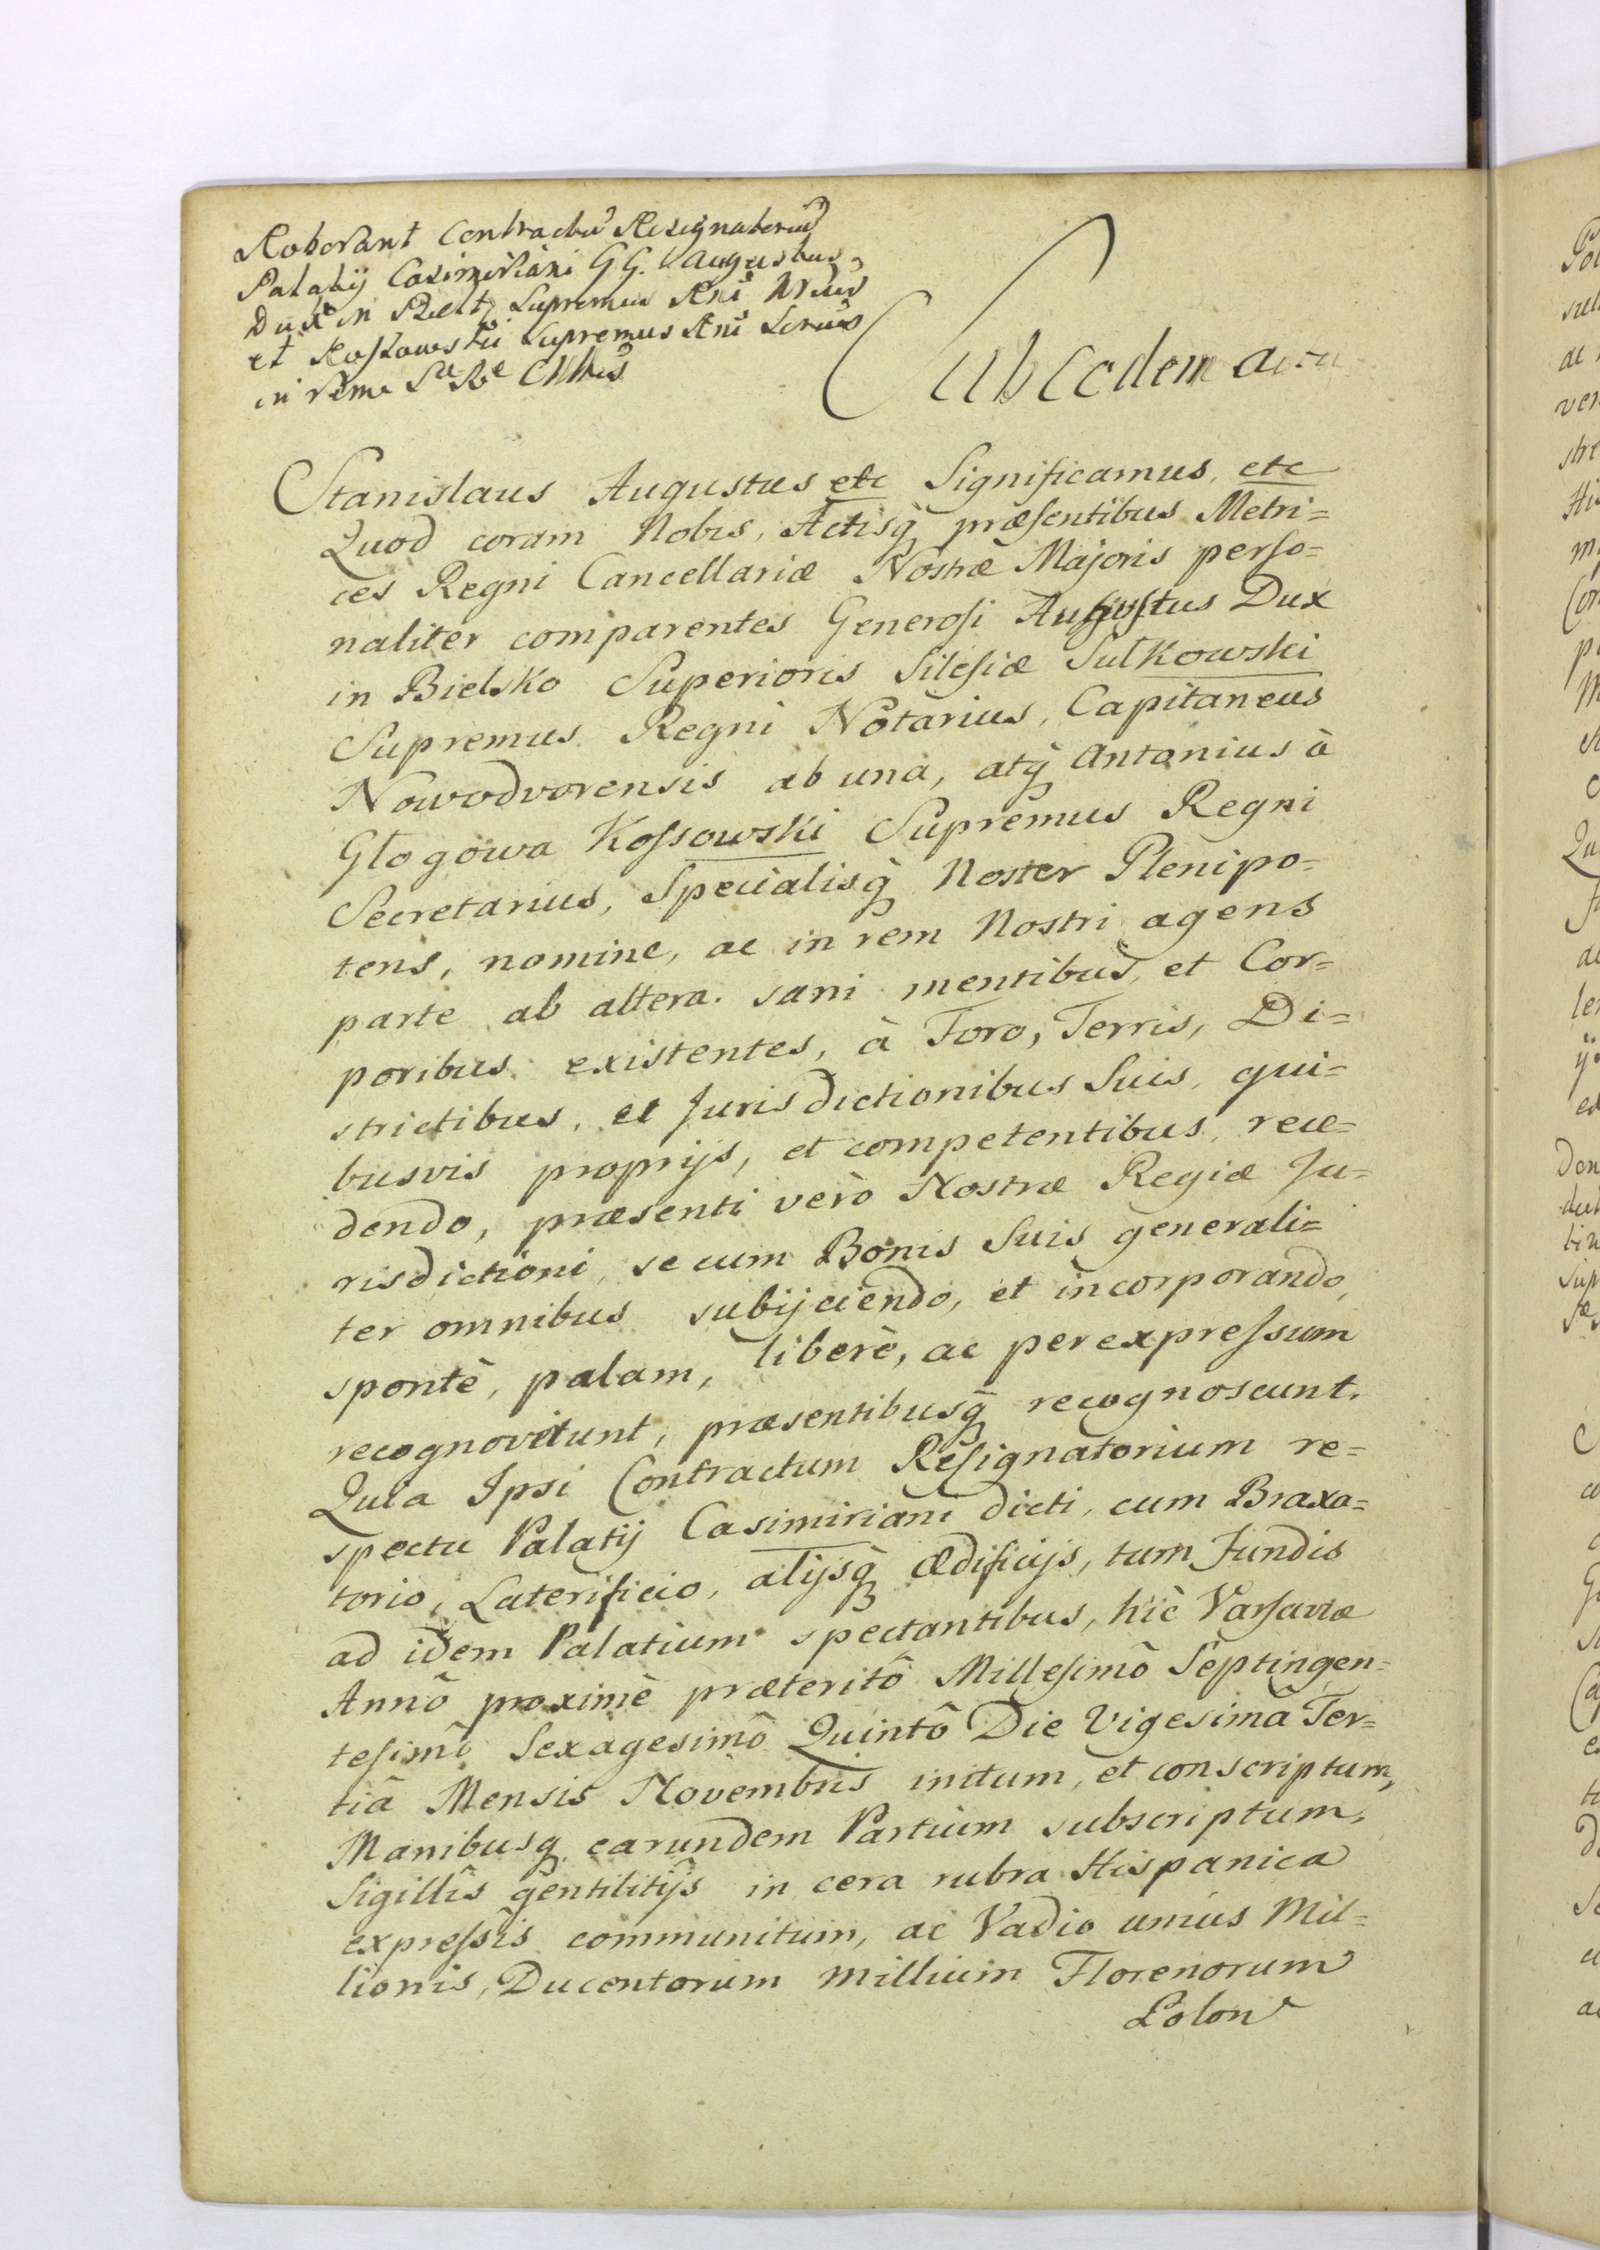 Roborant Contractũ Resignatoriũ
Palatij Casimiriani GG. Augustus
Dux in Bielt Supremus Rni Nrius
et Kossowski Supremus Rni Scrius
in rem Sae Rae Mttis
Sub eodem actu
Stanislaus Augustus etc Significamus, etc
Quod coram Nobis, Actisq̃ præsentibus Metri=
ces Regni Cancellariæ Nostræ Majoris perso=
naliter comparentes Generosi Augustus Dux
in Bielsko Superioris Silesiæ Sulkowski
Supremus Regni Notarius, Capitaneus
Nowodvorensis ab una, atq̃ Antonius à
Głogowa Kossowski Supremus Regni
Secretarius, Specialisq̃ Noster Plenipo=
tens, nomine, ac in rem Nostri agens
parte ab altera. sani mentibus, et Cor=
poribus existentes, à Foro, Terris, Di=
strictibus, et Jurisdictionibus Suis, qui=
busvis proprijs, et competentibus, rece=
dendo, præsenti verò Nostræ Regiæ Ju=
risdictioni, se cum Bonis Suis generali=
ter omnibus subijciendo, et incorporando,
spontè, palam, liberè, ac per expressum
recognoverunt, præsentibusq̃ recognoscunt.
Quia Ipsi Contractum Resignatorium re=
spectu Palatij Casimiriani dicti, cum Braxa=
torio, Laterificio, alijsq̃ Ædificijs, tum Fundis
ad idem Palatium spectantibus, hic Varsaviæ
Annô proximè præteritô Millesimô Septingen=
tesimô Sexagesimô Quintô Die Vigesima Ter=
tiâ Mensis Novembris initum, et conscriptum,
Manibusq. earundem Partium subscriptum,
Sigillis gentilitijs in cera rubra Hispanica
expressis communitum, ac Vadio unius Mil=
lionis, Ducentorum millium Florenorum
Polon